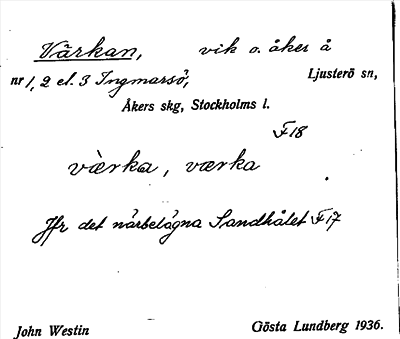 Värkan, vik o. åker å
nr 1, 2 el. 3 Ingmarsö, Ljusterö sn,
Åkers skg, Stockholms l.
F18
værka, værka
Jfr det närbelägna Sandhålet F17
John Westin Gösta Lundberg 1936.